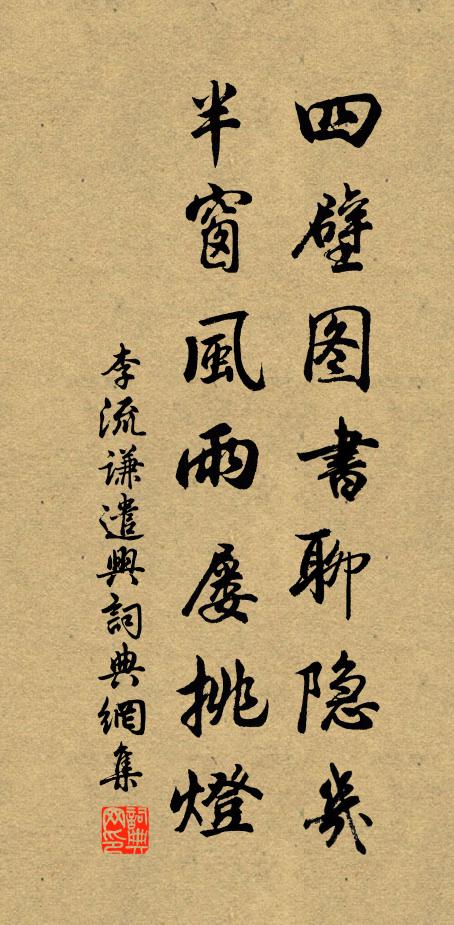 四壁图書聊隐几
半窗風雨屡挑燈
李流謙遣興詞典網集
詞典網印